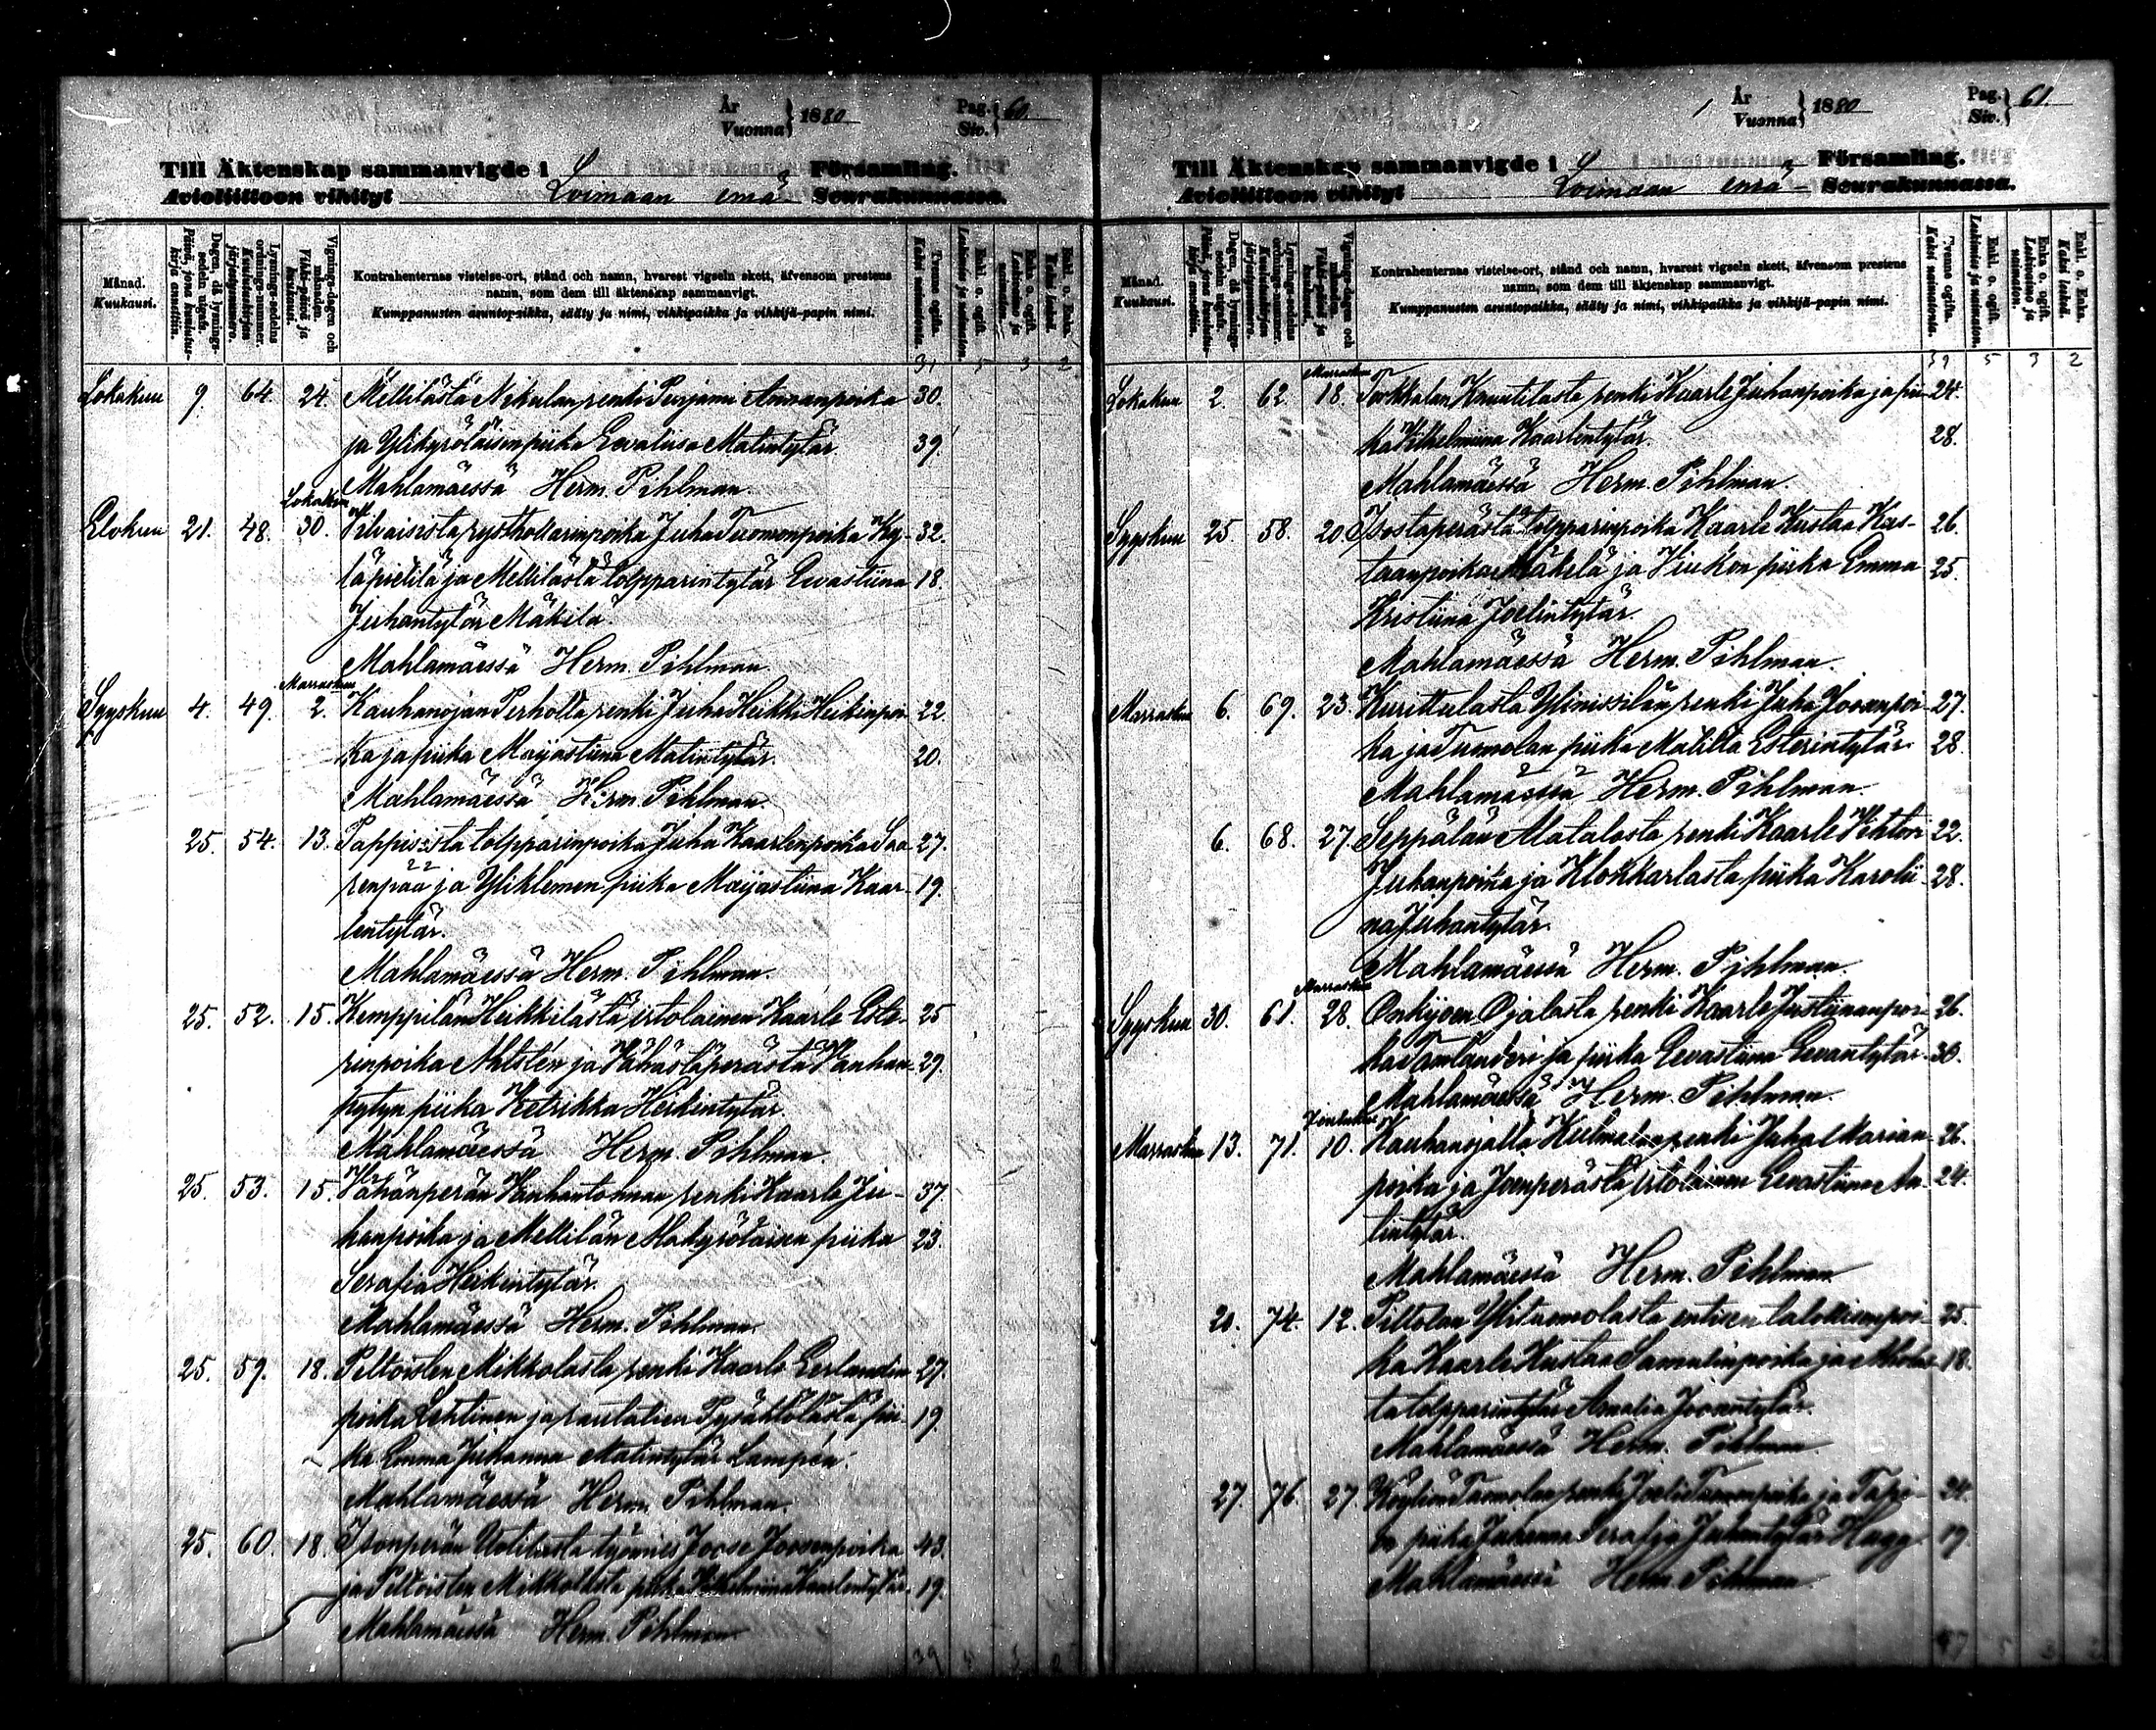 År
Vuonna } 1880
Pag.
Siv. } 60.
Till Äktenskap sammanvigde i Församling.
Avioliittoon vihityt Loimaan emä Seurakunnassa.
Månad.
Kuukausi.
Dagen, då lysnings-sedeln utgafs.
Päivä, jona kuulutus-kirja annettiin.
Lysnings-sedelns ordnings-nummer.
Kuulutuskirjan järjestysnumero.
Vignings-dagen och månaden.
Vihki-päivä ja kuukausi.
Kontrahenternas vistelse-ort, stånd och namn, hvarest vigseln skett, äfvensom prestens
namn, som dem till äktenskap sammanvigt.
Kumppanusten asuntopaikka, sääty ja nimi, vihkipaikka ja vihkijä-papin nimi.
Tvenne ogifta.
Kaksi naimatonta.
Enkl. o. ogift.
Leskimies ja naimaton.
Enka o. ogift.
Leskivaimo ja naimaton.
Enkl. o. Enka.
Kaksi leskeä.
31 5 3 2
Lokakuu 9. 64. 24. Mellilästä Nikulan renki Penjami Annanpoika 30.
ja Ylikyröläisen piika Eevaliisa Matintytär 39.
Mahlamäessä Herm. Pihlman.
Lokakuu
Elokuu 21. 48. 30. Vilvaisista rysthollarinpoika Juha Tuomonpoika Ky- 32.
läpietilä ja Mellilästä tolpparintytär Eevastiina 18.
Juhantytär Mäkilä.
Mahlamäessä Herm. Pihlman.
Marraskuu
Syyskuu 4. 49. 2. Kauhanojan Perholta renki Juha Heikki Heikinpoi- 22
ka ja piika Maijastiina Matintytär. 20.
Mahlamäessä Herm. Pihlman.
25. 54. 13. Pappisista tolpparinpoika Juha Kaarlenpoika Saa- 27.
renpää ja Yliklemen piika Maijastiina Kaar- 19.
lentytär.
Mahlamäessä Herm. Pihlman.
25. 52. 15. Kemppilän Heikkilästä irtolainen Kaarle Este- 25
rinpoika Ahlstén ja Vähästäperästä Vanhan- 29.
pytyn piika Vetrikka Heikintytär.
Mahlamäessä Herm. Pihlman.
25. 53. 15. Vähänperän Vanhantonnan renki Kaarle Ju- 37.
hanpoika ja Mellilän Makyröläisen piika 23.
Serafia Heikintytär.
Mahlamäessä Herm. Pihlman.
25. 59. 18. Peltoisten Mikkolasta renki Kaarle Eerlandin- 27.
poika Lehtinen ja rautatien Pysähtölästä pii- 19.
ka Emma Juhanna Matintytär Lampén.
Mahlamäessä Herm. Pihlman.
25. 60. 18. Isonperän Uotilasta työmies Joose Joosenpoika 43.
ja Peltoisten Mikkolasta piika Vilhelmiina Kaarlentytär. 19.
Mahlamäessä Herm. Pihlman
39 5 3 2
År
Vuonna } 1880
Pag.
Siv. } 61.
Till Äktenskap sammanvigde i Församling.
Avioliittoon vihityt Loimaan emä Seurakunnassa.
Månad.
Kuukausi.
Dagen, då lysnings-sedeln utgafs.
Päivä, jona kuulutus-kirja annettiin.
Lysnings-sedelns ordnings-nummer.
Kuulutuskirjan järjestysnumero.
Vignings-dagen och månaden.
Vihki-päivä ja kuukausi.
Kontrahenternas vistelse-ort, stånd och namn, hvarest vigseln skett, äfvensom prestens
namn, som dem till äktenskap sammanvigt.
Kumppanusten asuntopaikka, sääty ja nimi, vihkipaikka ja vihkijä-papin nimi.
Tvenne ogifta.
Kaksi naimatonta.
Enkl. o. ogift.
Leskimies ja naimaton.
Enka o. ogift.
Leskivaimo ja naimaton.
Enkl. o. Enka.
Kaksi leskeä.
39 5 3 2
Marraskuu
Lokakuu 2. 62. 18. Torkkalan Knuutilasta renki Kaarle Juhanpoika ja pii- 24.
ka Vilhelmiina Kaarlentytär. 28.
Mahlamäessä Herm. Pihlman.
Syyskuu 25. 58. 20. Isostaperästä tolpparinpoika Kaarle Kustaa Kus- 26.
taanpoika Mäkelä ja Viukon piika Emma 25.
Kristiina Joelintytär.
Mahlamäessä Herm. Pihlman.
Marraskuu 6. 69. 23. Kurittulasta Ylinissilän renki Juha Joosenpoi- 27.
ka ja Tuomolan piika Matilta Esterintytär. 28.
Mahlamäessä Herm. Pihlman.
6. 68. 27. Seppälän Matalasta renki Kaarle Vihtori 22.
Juhanpoika ja Klokkarlasta piika Karolii- 28.
na Juhantytär.
Mahlamäessä Herm. Pihlman.
Marraskuu
Syyskuu 30. 61. 28. Onkijoen Ojalasta renki Kaarle Justiinanpoi- 26.
ka Tamlanderi ja piika Eevastiina Eevantytär. 30.
Mahlamäessä Herm. Pihlman.
Joulukuu
Marraskuu 13. 71. 10. Kauhanojalta Kulmalan renki Juha Marian- 26.
poika ja Joenperästä irtolainen Eevastiina An- 24.
tintytär.
Mahlamäessä Herm. Pihlman
20. 74. 12. Piltolan Ylituomolasta entisen talollisenpoi- 25.
ka Kaarle Kustaa Samulinpoika ja Aholas- 18.
ta tolpparintytär Amalia Joosentytär.
Mahlamäessä Herm. Pihlman
27. 76. 27. Köyliön Tuomolan renki Joeli Tuomonpoika ja 24.
piika Juhanna Serafia Juhantytär Hagg 19.
Mahlamäessä Herm. Pihlman
47 5 3 2